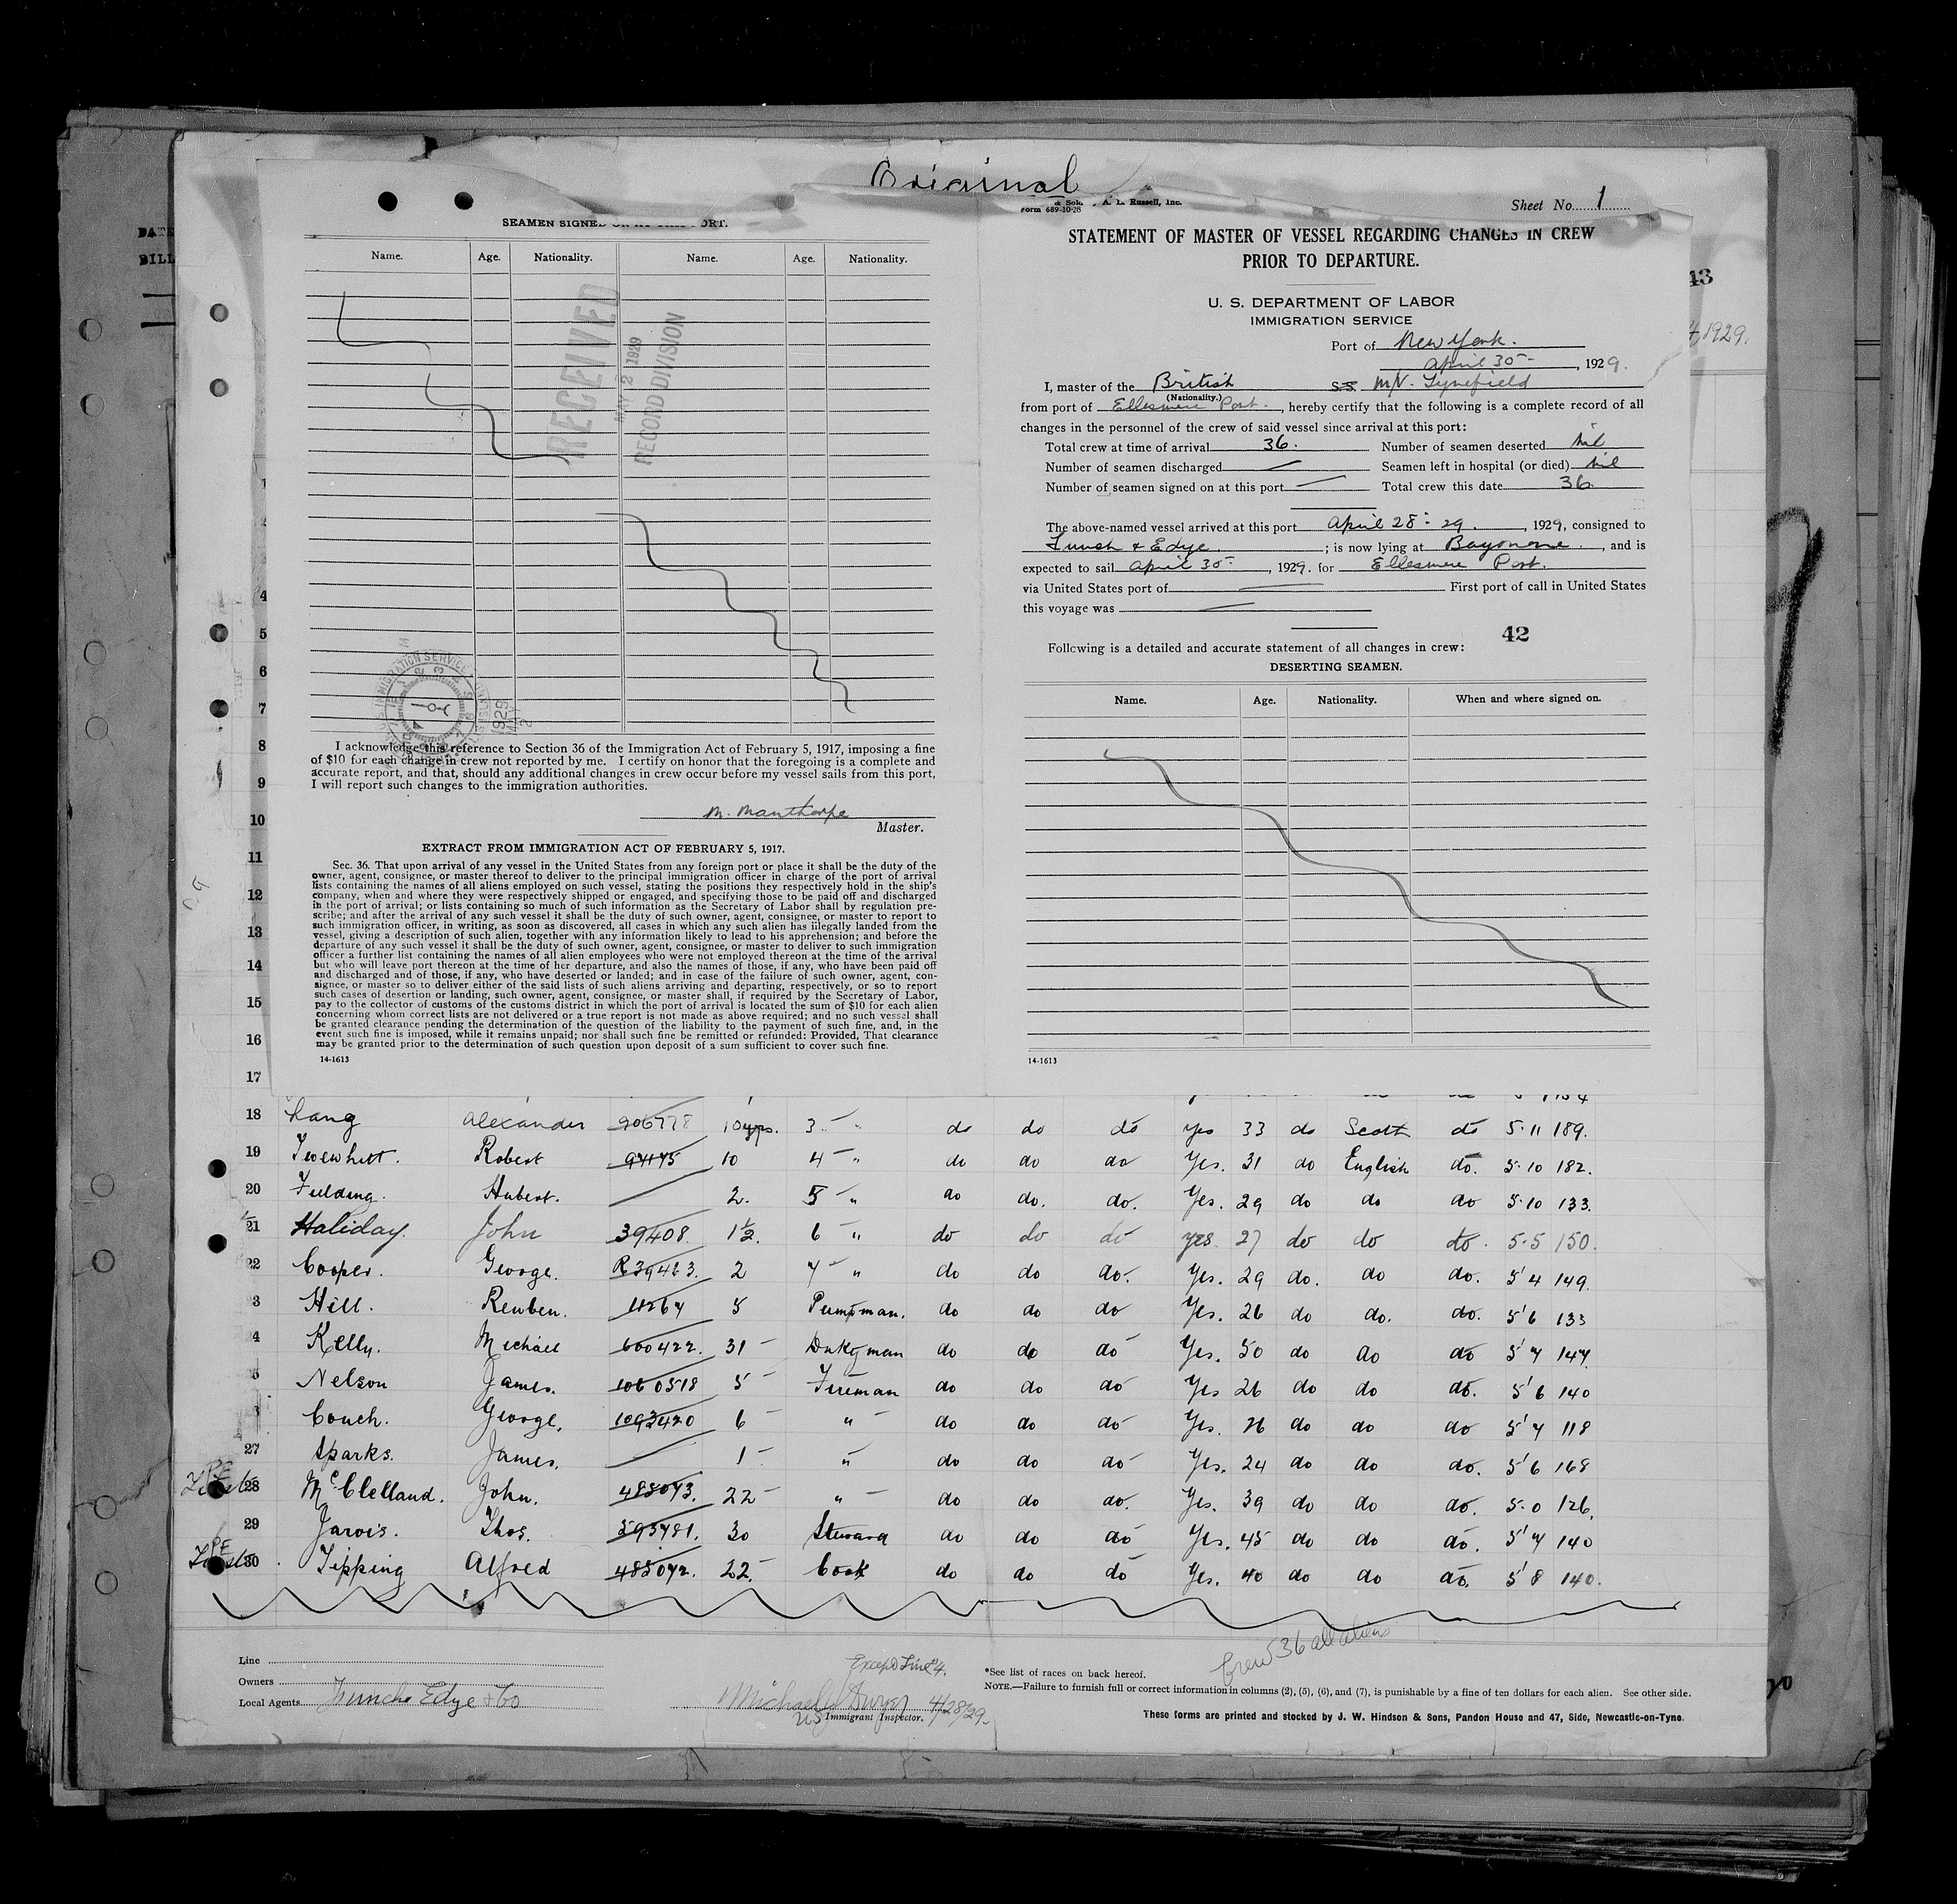 Original
Form 689-10-28
A. L. Russell, Inc.
Sheet No. 1
DATE
BILL
SEAMEN SIGNED ON AT THIS PORT.
Name. Age. Nationality. Name. Age. Nationality.
RECEIVED
MAY 2 1929
RECORD DIVISION
I acknowledge this reference to Section 36 of the Immigration Act of February 5, 1917, imposing a fine
of $10 for each change in crew not reported by me. I certify on honor that the foregoing is a complete and
accurate report, and that, should any additional changes in crew occur before my vessel sails from this port,
I will report such changes to the immigration authorities.
M. Manthorpe
Master.
EXTRACT FROM IMMIGRATION ACT OF FEBRUARY 5, 1917.
Sec. 36. That upon arrival of any vessel in the United States from any foreign port or place it shall be the duty of the
owner, agent, consignee, or master thereof to deliver to the principal immigration officer in charge of the port of arrival
lists containing the names of all aliens employed on such vessel, stating the positions they respectively hold in the ship's
company, when and where they were respectively shipped or engaged, and specifying those to be paid off and discharged
in the port of arrival; or lists containing so much of such information as the Secretary of Labor shall by regulation pre-
scribe; and after the arrival of any such vessel it shall be the duty of such owner, agent, consignee, or master to report to
such immigration officer, in writing, as soon as discovered, all cases in which any such alien has illegally landed from the
vessel, giving a description of such alien, together with any information likely to lead to his apprehension; and before the
departure of any such vessel it shall be the duty of such owner, agent, consignee, or master to deliver to such immigration
officer a further list containing the names of all alien employees who were not employed thereon at the time of the arrival
but who will leave port thereon at the time of her departure, and also the names of those, if any, who have been paid off
and discharged and of those, if any, who have deserted or landed; and in case of the failure of such owner, agent, con-
signee, or master so to deliver either of the said lists of such aliens arriving and departing, respectively, or so to report
such cases of desertion or landing, such owner, agent, consignee, or master shall, if required by the Secretary of Labor,
pay to the collector of customs of the customs district in which the port of arrival is located the sum of $10 for each alien
concerning whom correct lists are not delivered or a true report is not made as above required; and no such vessel shall
be granted clearance pending the determination of the question of the liability to the payment of such fine, and, in the
event such fine is imposed, while it remains unpaid; nor shall such fine be remitted or refunded: Provided, That clearance
may be granted prior to the determination of such question upon deposit of a sum sufficient to cover such fine.
14-1613
STATEMENT OF MASTER OF VESSEL REGARDING CHANGES IN CREW
PRIOR TO DEPARTURE.
U. S. DEPARTMENT OF LABOR
IMMIGRATION SERVICE
Port of New York.
April 30, 1929.
I, master of the British SS M/V. Tynefield
(Nationality.)
from port of Ellesmere Port., hereby certify that the following is a complete record of all
changes in the personnel of the crew of said vessel since arrival at this port:
Total crew at time of arrival 36. Number of seamen deserted Nil
Number of seamen discharged — Seamen left in hospital (or died) Nil
Number of seamen signed on at this port — Total crew this date 36.
The above-named vessel arrived at this port April 28 - 29., 1929, consigned to
Funch & Edye; is now lying at Bayonne., and is
expected to sail April 30, 1929. for Ellesmere Port.
via United States port of — First port of call in United States
this voyage was —
42
Following is a detailed and accurate statement of all changes in crew:
DESERTING SEAMEN.
Name. Age. Nationality. When and where signed on.
14-1613
43
1929.
4
5
6
7
8
9
10
11
12
13
14
15
16
17
18 Lang Alexander 906778 10 yrs. 3 " do do do Yes 33 do Scott do 5.11 189.
19 Twewhitt. Robert 94145 10 4 " do do do Yes. 31 do English do. 5.10 182.
20 Fielding. Hubert. — 2. 5 " do do. do. Yes. 29 do do do 5.10 133.
21 Haliday. John 39408. 1½. 6 " do do do yes 27 do do do. 5.5 150.
22 Cooper. George. R39423. 2 7 " do do do. Yes. 29 do. do do. 5'4 149.
3 Hill. Reuben. 11264 5 Pumpman. do do do Yes. 26 do do. do. 5'6 133
4 Kelly. Michael 600422. 31 Dnkyman do do do Yes. 50 do do do 5'7 147.
5 Nelson James. 1060518 5 Fireman do do do Yes 26 do do do. 5'6 140
Couch. George. 1093420 6 " do do do Yes. 26 do do do 5'7 118
27 Sparks. James. — 1 " do do do Yes. 24 do do do. 5'6 168
28 McClelland. John. 485073. 22 " do do do. Yes. 39 do do do. 5.0 126.
29 Jarvis. Thos. 593781. 30 Steward do do do Yes. 45 do do do. 5'7 140
30 Tipping Alfred 485072. 22. Cook do do do Yes. 40 do do do. 5'8 140.
Crew 36 all aliens
Except Line 4.
Line
Owners
Local Agents Funch Edye & Co
Michael J Dwyer 4/28/29.
US Immigrant Inspector.
*See list of races on back hereof.
NOTE.—Failure to furnish full or correct information in columns (2), (5), (6), and (7), is punishable by a fine of ten dollars for each alien. See other side.
These forms are printed and stocked by J. W. Hindson & Sons, Pandon House and 47, Side, Newcastle-on-Tyne.